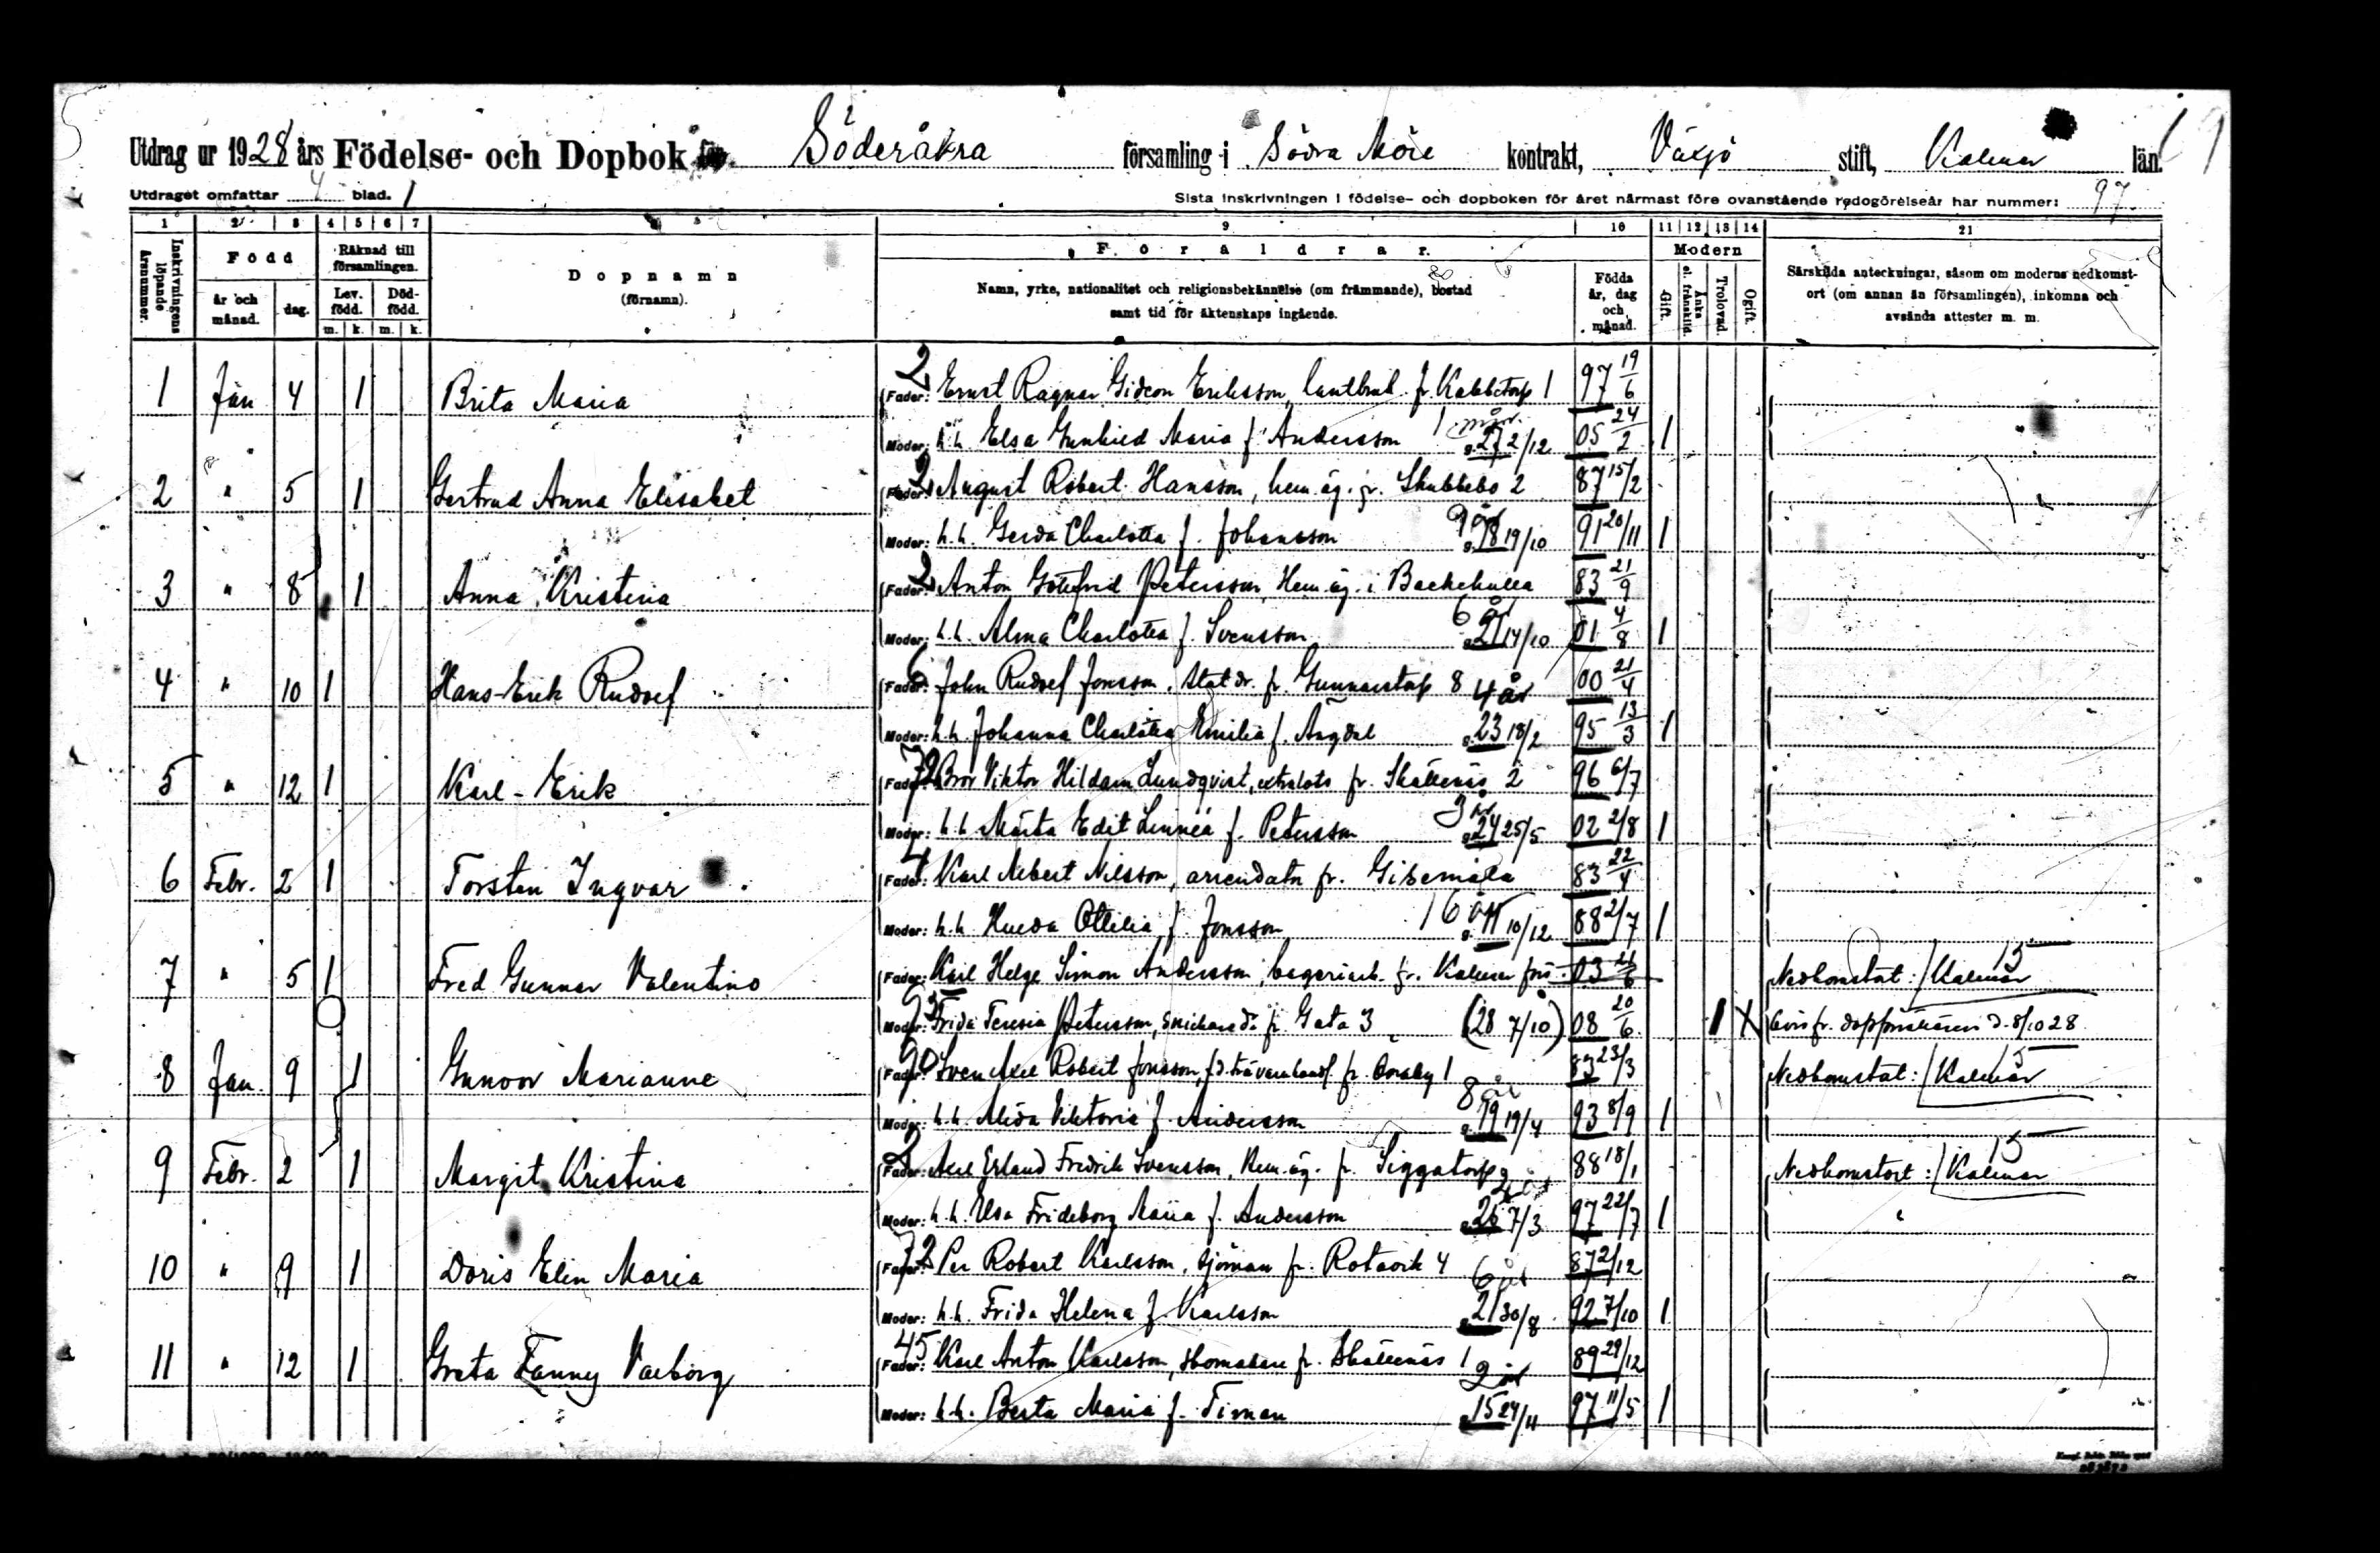 Utdrag ur 1928 års Födelse- och Dopbok för Söderåkra församling i Södra Möre kontrakt, Växjö stift, Kalmar län.
Utdraget omfattar 4 blad. 1
Sista inskrivningen i födelse- och dopboken för året närmast före ovanstående redogörelseår har nummer: 97
1 2 3 4 5 6 7 8 9 10 11 12 13 14 21
Inskrivningens löpande årsnummer.
Född
år och månad.
dag.
Räknad till församlingen.
Lev. född.
Död-född.
m. k. m. k.
Dopnamn
(förnamn).
Föräldrar.
Namn, yrke, nationalitet och religionsbekännelse (om främmande), bostad
samt tid för äktenskaps ingående.
Födda år, dag och månad.
Modern
Gift.
Änka el. frånskild.
Trolovad.
Ogift.
Särskilda anteckningar, såsom om moderns nedkomst-
ort (om annan än församlingen), inkomna och
avsända attester m. m.
1 Jan 4 1 Brita Maria Fader: 2 Ernst Ragnar Gideon Eriksson, lantbruk. fr. Kabbetorp 1 97 19/6
Moder: h. h. Elsa Gunhild Maria f. Andersson 1 mån. g. 27 2/12 05 24/2 1
2 " 5 1 Gertrud Anna Elisabet Fader: 2 August Robert Hansson, hem.äg. fr. Skubbebo 2 87 15/2
Moder: h. h. Gerda Charlotta f. Johansson 9 år g. 18 19/10 91 20/11 1
3 " 8 1 Anna Kristina Fader: 2 Anton Gottfrid Petersson, Hem.äg. i Backekulla 83 21/9
Moder: h. h. Alma Charlotta f. Svensson 6 år g. 21 14/10 01 4/8 1
4 " 10 1 Hans-Erik Rudolf Fader: John Rudolf Jonsson, statdr. fr. Gunnarstorp 8 00 21/4
Moder: h. h. Johanna Charlotta Emilia f. Ängdal 4 år g. 23 18/2 95 13/3 1
5 " 12 1 Karl-Erik Fader: 72 Bror Viktor Hildam Lundqvist, extralots fr. Skällenäs 2 96 6/7
Moder: h. h. Märta Edit Linnéa f. Petersson 3 år g. 24 25/5 02 2/8 1
6 Febr. 2 1 Torsten Ingvar Fader: 4 Karl Albert Nilsson, arrendator fr. Gisemåla 83 22/4
Moder: h. h. Hulda Ottilia f. Jonsson 16 år g. 11 10/12 88 2/7 1
7 " 5 1 Fred Gunnar Valentino Fader: Karl Helge Simon Andersson, bageriarb. fr. Kalmar förs. 03 21/6 Nedkomstort: / Kalmar 15
Moder: Frida Teresia Petersson, snickaredr. fr. Gata 3 (28 7/10) 08 20/6 1 X Avis fr. dopförrättaren d. 8/10 28
8 Jan. 9 1 Gunvor Marianne Fader: 90 Sven Axel Robert Jonsson, f.d. trävaruhandl. fr. Örsby 1 83 23/3 Nedkomstort: / Kalmar 15
Moder: h. h. Alida Viktoria f. Andersson 8 år g. 19 19/4 93 8/9 1
9 Febr. 2 1 Margit Kristina Fader: 2 Axel Erland Fredrik Svensson, Hem.äg. fr. Siggatorp 88 18/1 Nedkomstort: / Kalmar 15
Moder: h. h. Elsa Frideborg Maria f. Andersson g. 26 7/3 97 22/7 1
10 " 9 1 Doris Elin Maria Fader: 72 Per Robert Karlsson, sjöman fr. Rotavik 4 87 2/12
Moder: h. h. Frida Helena f. Karlsson 6 år g. 21 30/8 92 7/10 1
11 " 12 1 Greta Fanny Valborg Fader: 45 Karl Anton Karlsson, skomakare fr. Skällenäs 1 89 29/12
Moder: h. h. Berta Maria f. Timan g. 15 24/11 97 11/5 1